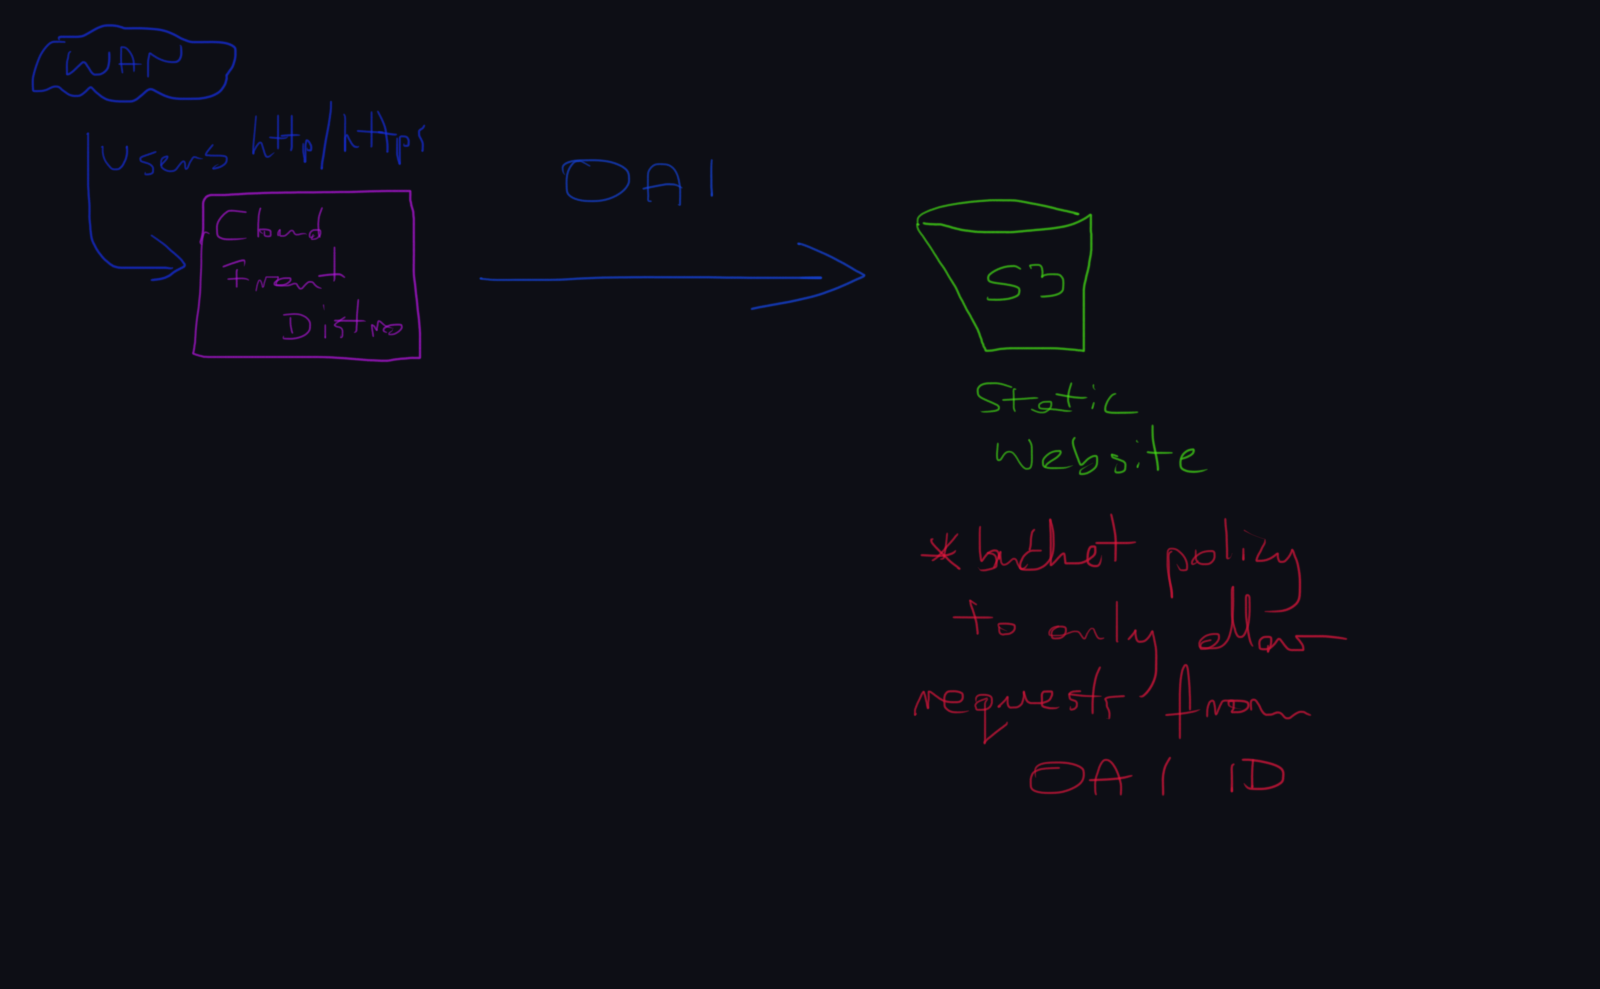 WAN
Users http/https
Cloud
Front
Distro
OAI
S3
Static
Website
*bucket policy
to only allow
requests from
OAI ID